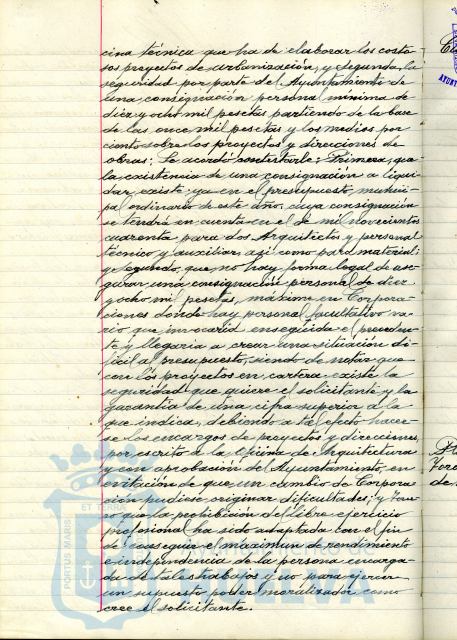 cina técnica que ha de elaborar los costo
sos proyectos de urbanización; y segunda, la
seguridad por parte del Ayuntamiento de
una consignación personal mínima de
diez y ocho mil pesetas partiendo de la base
de las once mil pesetas y los medios por
ciento sobre los proyectos y direcciones de
obras; Se acordó contestarle: Primero, que
la existencia de una consignación a liqui-
dar, existe ya en el presupuesto munici-
pal ordinario de este año, cuya consignación
se tendrá en cuenta en el de mil novecientos
cuarenta para dos Arquitectos y personal
técnico y auxiliar, así como para material;
y segundo, que no hay forma legal de ase-
gurar una consignación personal de diez
y ocho mil pesetas, máxime en Corpora-
ciones donde hay personal facultativo va-
rio que invocaría enseguida el preceden-
te y llegaría a crear una situación di-
fícil al presupuesto, siendo de notar que
con los proyectos en cartera existe la
seguridad que quiere el solicitante y la
garantía de una cifra superior a la
que indica, debiendo a tal efecto hacer-
se los encargos de proyectos y direcciones,
por escrito a la Oficina de Arquitectura
y con aprobación del Ayuntamiento, en
evitación de que un cambio de Corpora-
ción pudiese originar dificultades; y
que la prohibición del libre ejercicio
profesional ha sido adoptada con el fin
de conseguir el maximun de rendimiento
e independencia de la persona encarga-
da de tales trabajos y no para ejercer
un supuesto poder moralizador como
cree el solicitante.
PORTUS MARIS ET TERRÆ
Ayuntamiento de
HUELVA
AYUNT